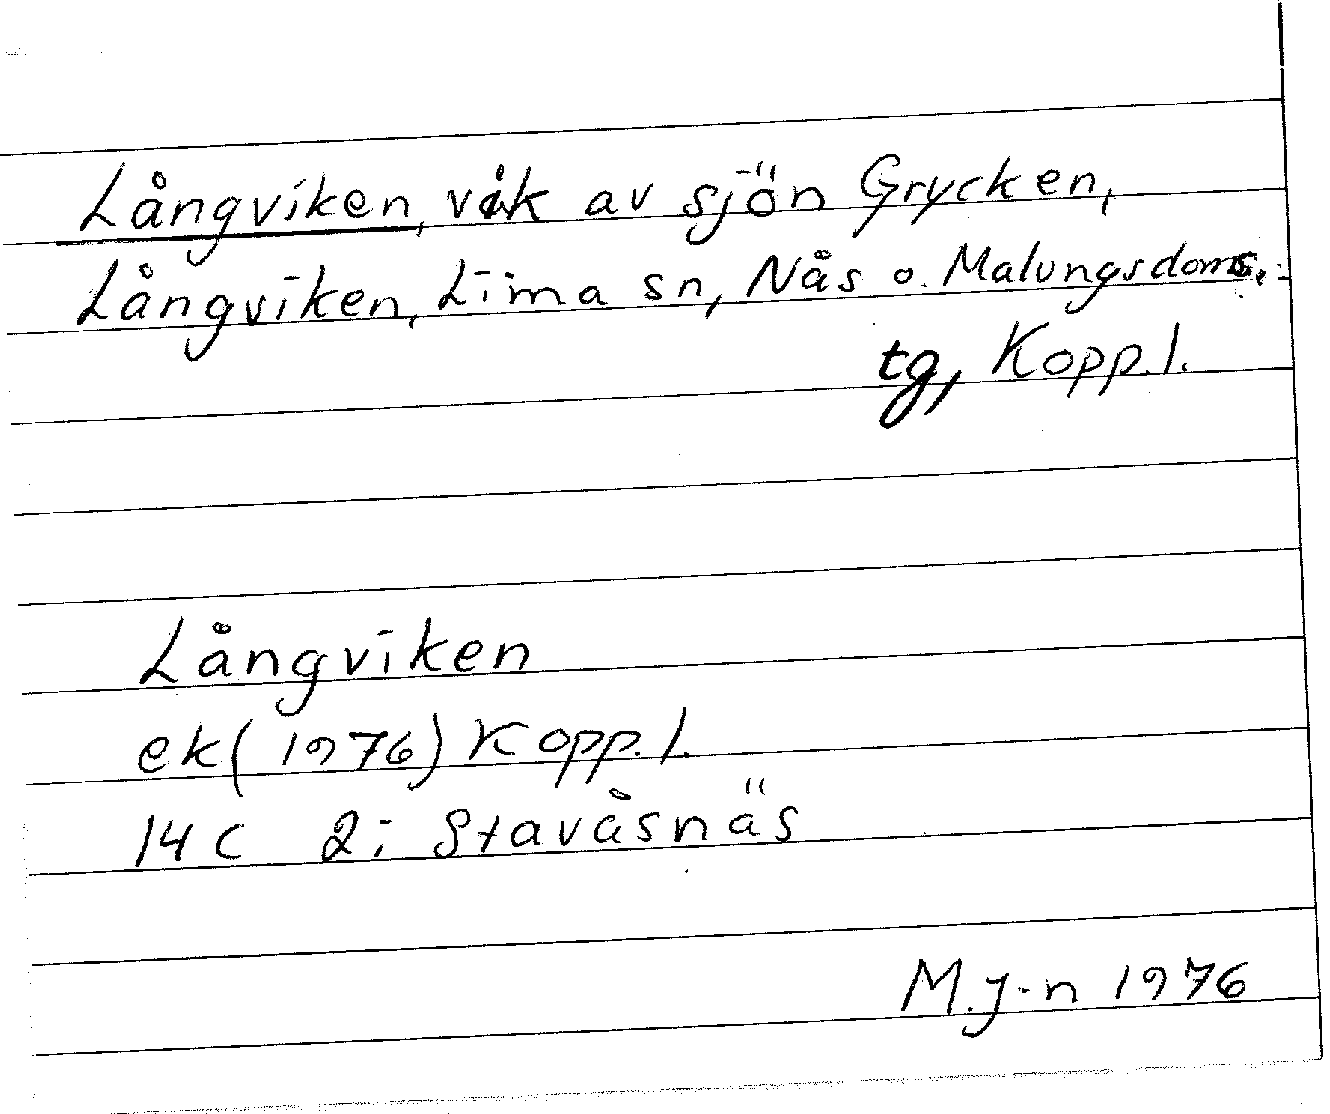 Långviken, vik av sjön Grycken,
Långviken, Lima sn, Nås o. Malungsdoms.
tg, Kopp.l.
Långviken
ek (1976) Kopp.l.
14C 2i Stavåsnäs
M.J-n 1976